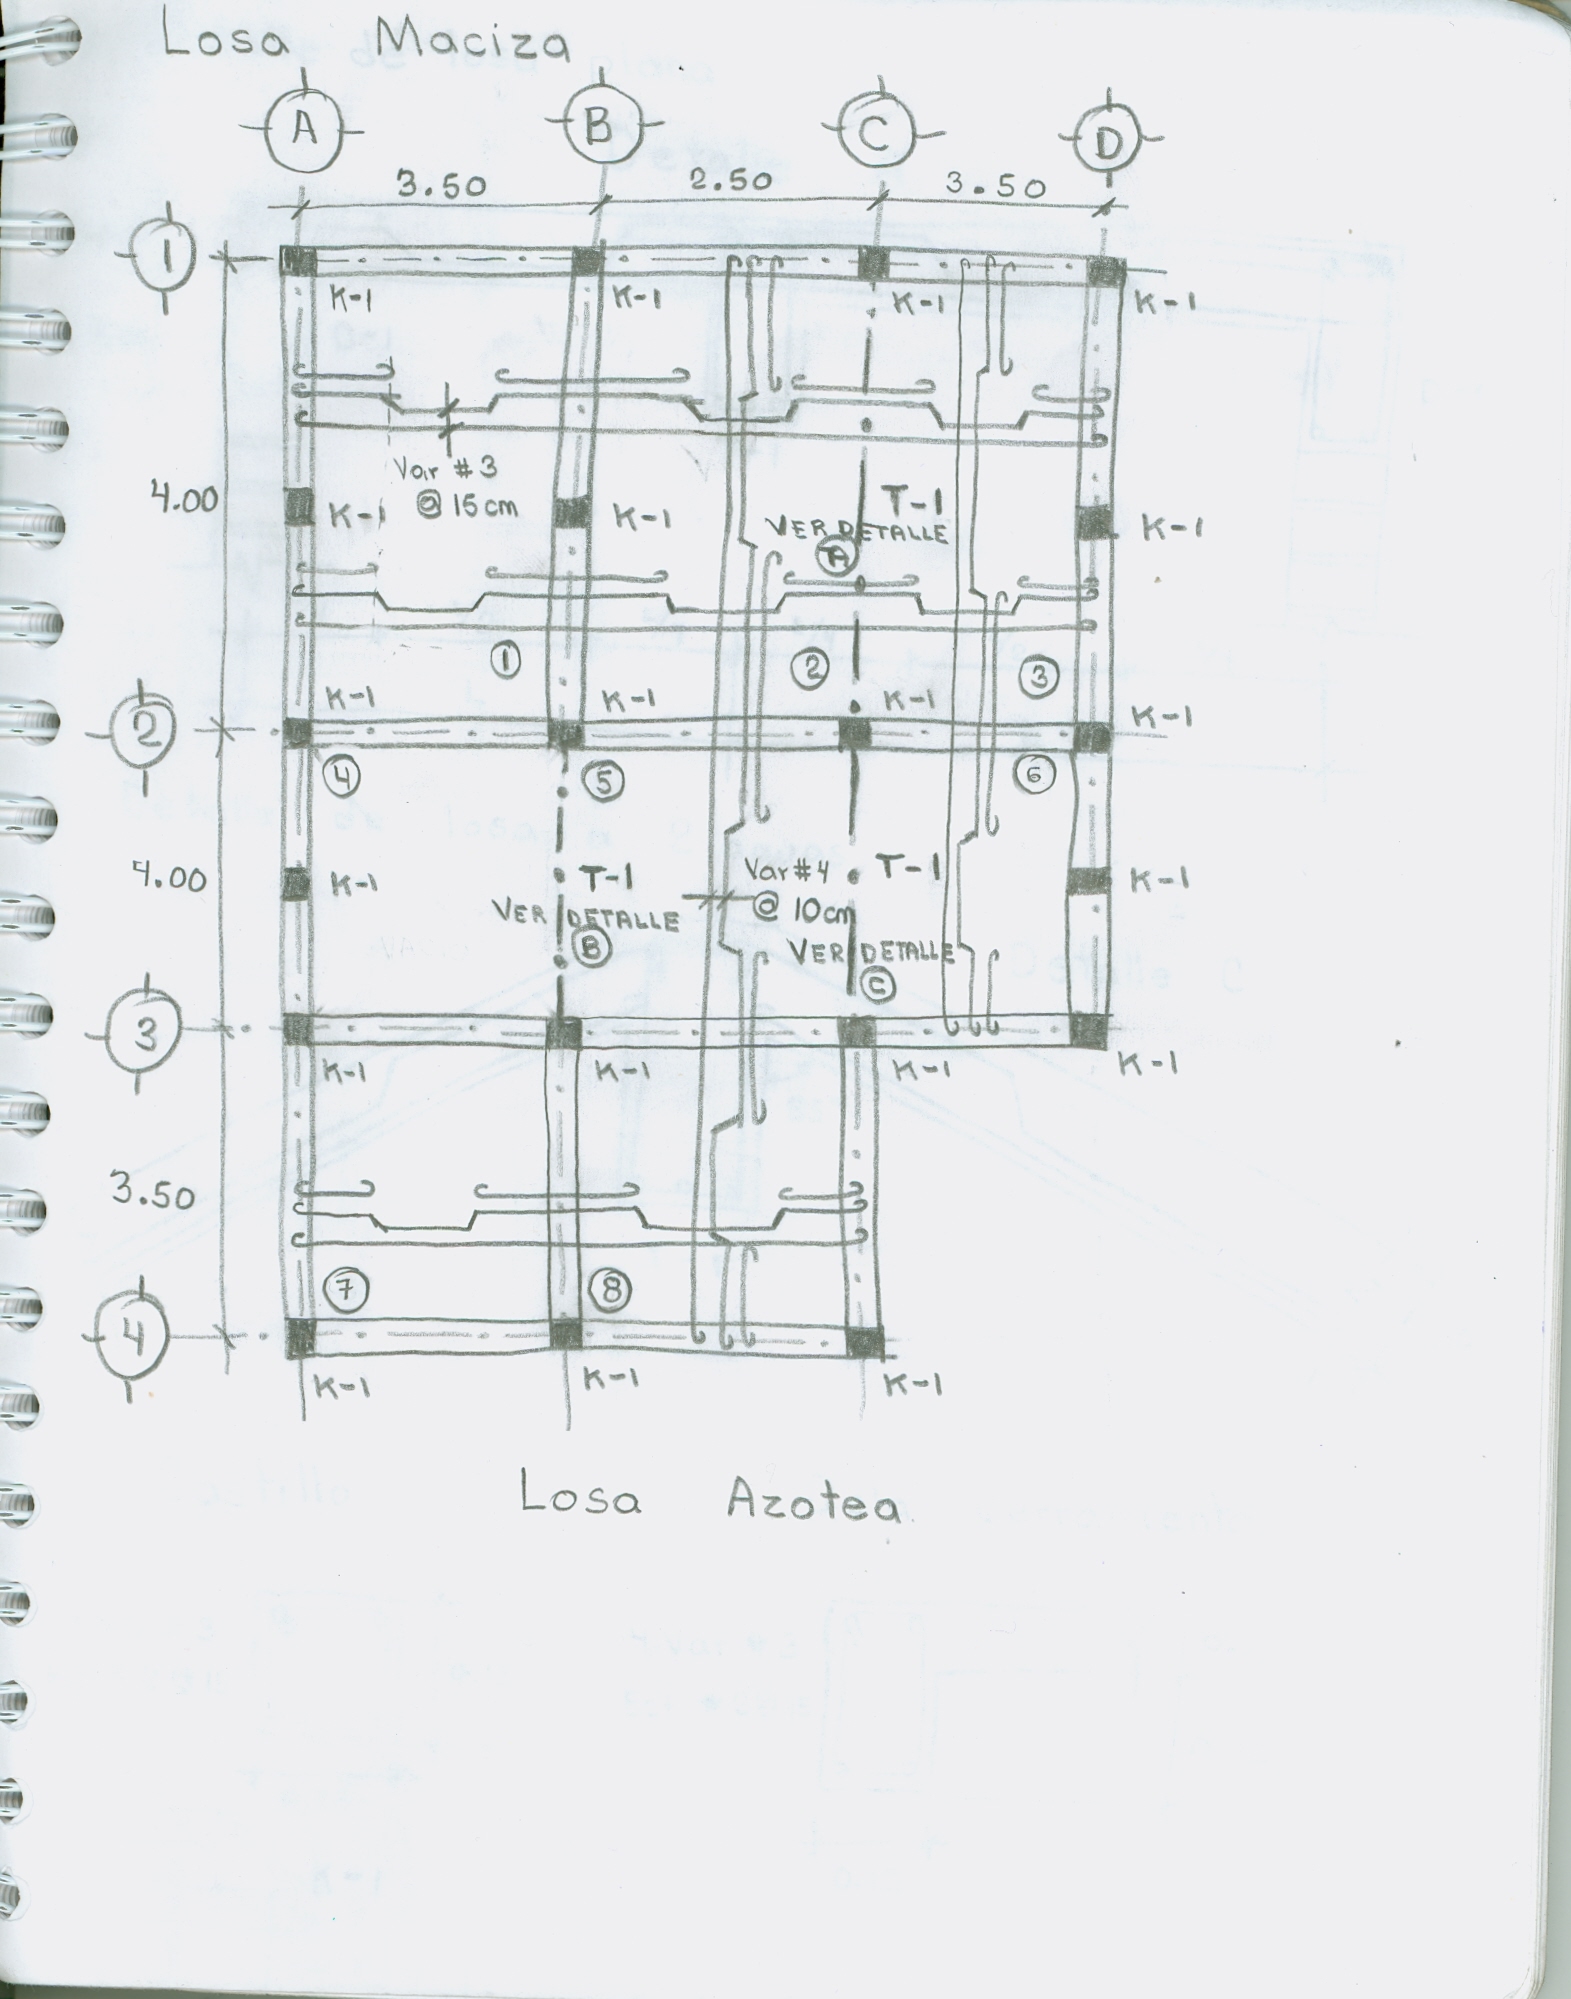 Losa Maciza
A B C D
3.50 2.50 3.50
1
K-1 K-1 K-1 K-1
Var #3
@ 15cm
4.00
K-1 K-1 K-1
T-1
VER DETALLE
A
1 2 3
K-1 K-1 K-1 K-1
2
4 5 6
4.00
K-1 K-1
T-1 Var #4 T-1
@ 10cm
VER DETALLE
B
VER DETALLE
C
3
K-1 K-1 K-1 K-1
3.50
7 8
4
K-1 K-1 K-1
Losa Azotea